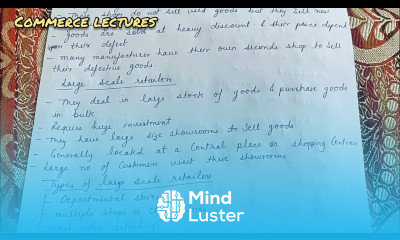 COMMERCE LECTURES
- They do not sell used goods but they sell new
goods are sold at heavy discount & their price depend
upon their defect
- Many manufacturer have their own seconds shop to sell
their defective goods
Large scale retailers
- They deal in large stock of goods & purchase goods
in bulk
- Require huge investment
- They have large size showrooms to sell goods
- Generally located at a central place or shopping centres
- Large no of customers visit these showrooms
Types of large scale retailers
- Departmental
- multiple shops
- mail order retailing
Mind
Luster